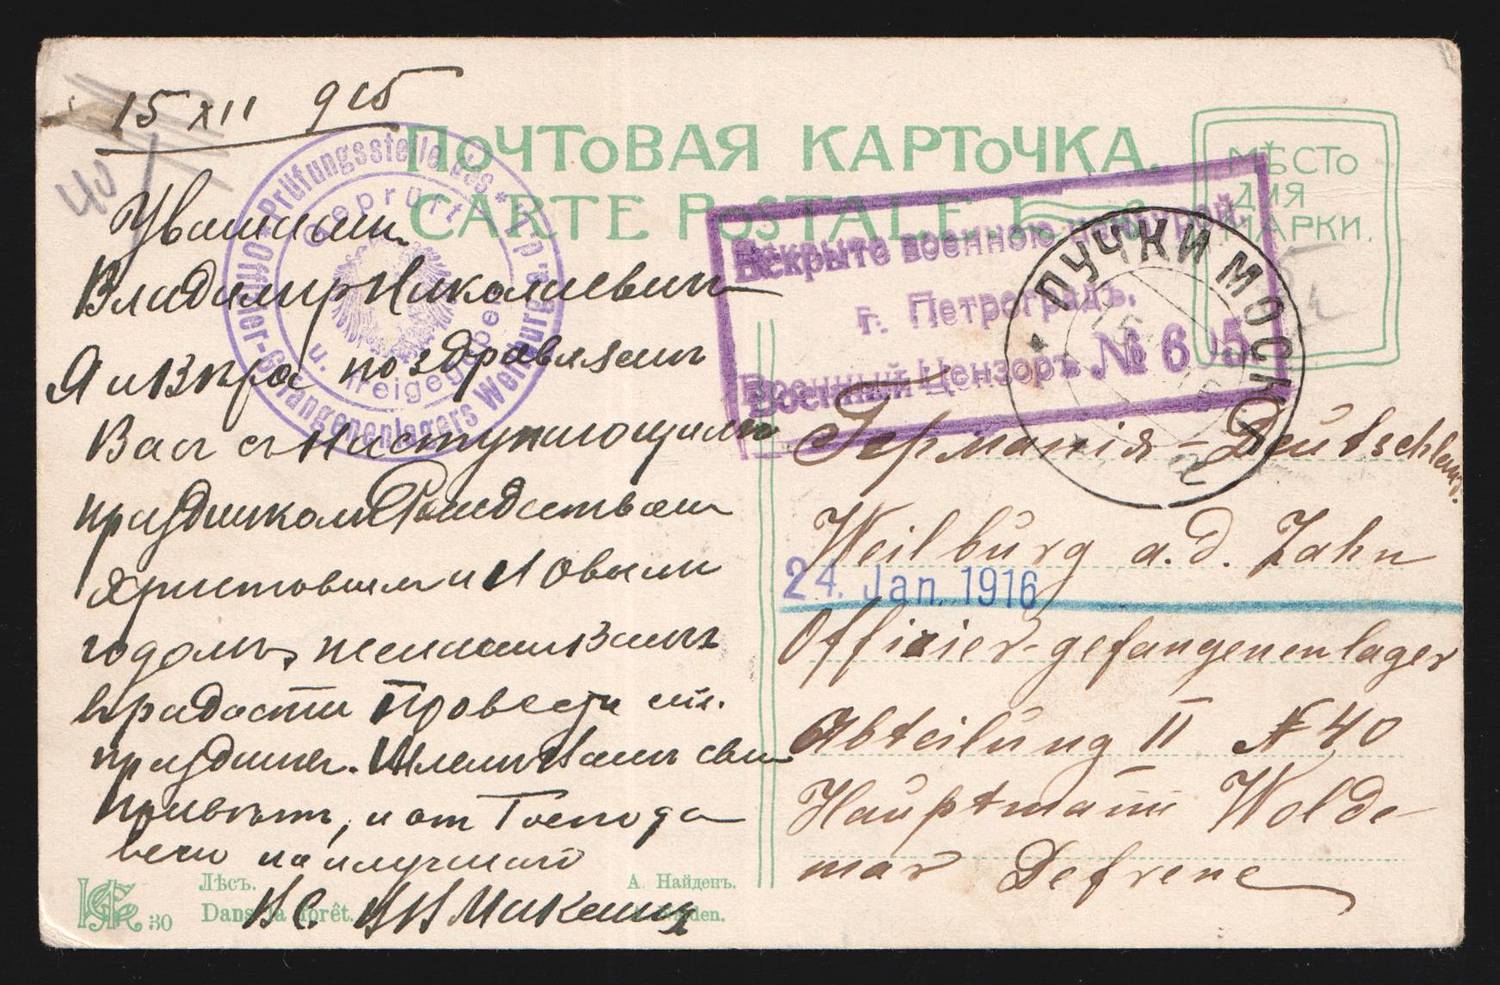 15 XII 915
ПОЧТОВАЯ КАРТОЧКА.
CARTE POSTALE.
МѢСТО
ДЛЯ
МАРКИ.
Prüfungsstelle des Offizier-Gefangenenlagers Weilburg a. d.
Geprüft
u. freigegeben
Вскрыто военною цензурой.
г. Петроградъ.
Военный Цензоръ № 695
ПУЧКИ МОСК.
40
Владимир Николаевич
Я и Вѣра поздравляемъ
Васъ съ наступающимъ
праздникомъ Рождествомъ
Христовымъ и Новымъ
годомъ, желаемъ Вамъ
въ радости провести
праздники. Шлемъ Вамъ свой
привѣтъ, и от Господа
всего наилучшего
Германія - Deutschland.
Weilburg a. d. Lahn
24. Jan. 1916
Offizier-gefangenenlager
Abteilung II № 40
Hauptmann Wolde-
mar Defrene
Лѣсъ.
А. Найденъ.
Dans la forêt.
30